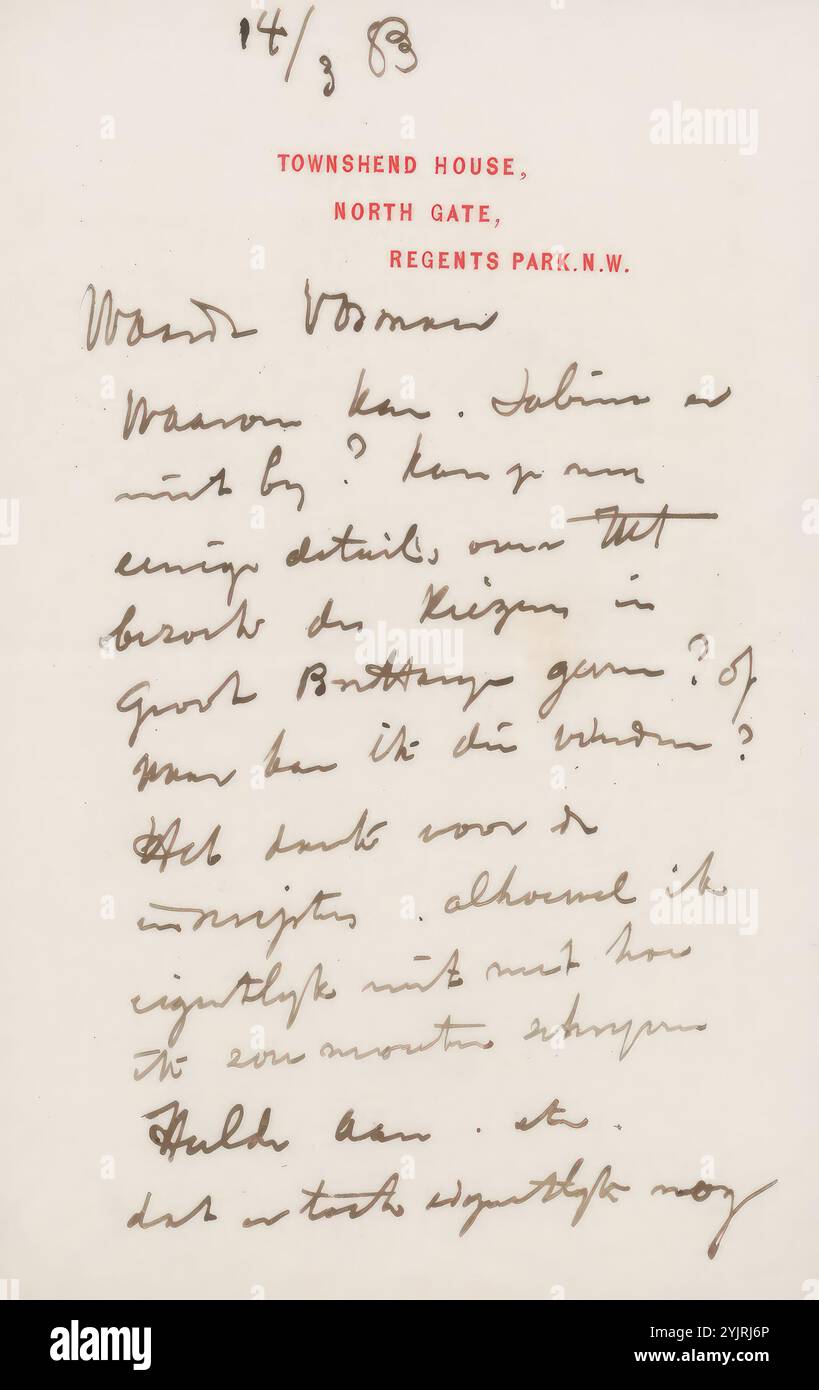 14/3 83
TOWNSHEND HOUSE,
NORTH GATE,
REGENTS PARK.N.W.
Waarde Vosmaer
Waarom kan . Sabina er
niet by? Kan je me
eenige details over het
bezoek des Keizers in
Groot Brittanje geven? of
waar kan ik die vinden?
Heb dank voor de
inscripties . alhoewel ik
eigentlyk niet weet hoe
ik zou moeten schryven
Hulde aan . etc .
dat is toch eigentlyk nog
alamy
Image ID: 2YJRJ6P
www.alamy.com